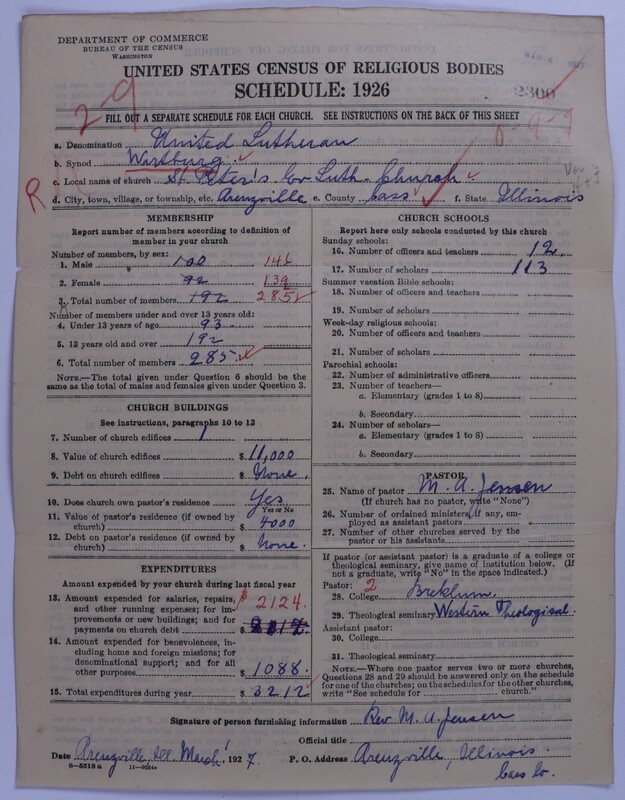 DEPARTMENT OF COMMERCE
BUREAU OF THE CENSUS
WASHINGTON
UNITED STATES CENSUS OF RELIGIOUS BODIES
SCHEDULE: 1926
2300
2-9
FILL OUT A SEPARATE SCHEDULE FOR EACH CHURCH. SEE INSTRUCTIONS ON THE BACK OF THIS SHEET
a. Denomination United Lutheran
b. Synod Wartburg
c. Local name of church St. Peter's Ev Luth. Church
R
d. City, town, village, or township, etc. Arenzville e. County Cass f. State Illinois
MEMBERSHIP
Report number of members according to definition of member in your church
Number of members, by sex:
1. Male 100 146
2. Female 92 139
3. Total number of members 192 285
Number of members under and over 13 years old:
4. Under 13 years of age 93
5. 13 years old and over 192
6. Total number of members 285
NOTE.—The total given under Question 6 should be the same as the total of males and females given under Question 3.
CHURCH BUILDINGS
See instructions, paragraphs 10 to 12
7. Number of church edifices 1
8. Value of church edifices $ 11,000
9. Debt on church edifices $ None.
10. Does church own pastor's residence Yes
Yes or No
11. Value of pastor's residence (if owned by church) $ 4000
12. Debt on pastor's residence (if owned by church) $ None.
EXPENDITURES
Amount expended by your church during last fiscal year
13. Amount expended for salaries, repairs, and other running expenses; for improvements or new buildings; and for payments on church debt $ 2124.
14. Amount expended for benevolences, including home and foreign missions; for denominational support; and for all other purposes $ 1088.
15. Total expenditures during year $ 3212
CHURCH SCHOOLS
Report here only schools conducted by this church
Sunday schools:
16. Number of officers and teachers 12
17. Number of scholars 113
Summer vacation Bible schools:
18. Number of officers and teachers
19. Number of scholars
Week-day religious schools:
20. Number of officers and teachers
21. Number of scholars
Parochial schools:
22. Number of administrative officers
23. Number of teachers—
a. Elementary (grades 1 to 8)
b. Secondary
24. Number of scholars—
a. Elementary (grades 1 to 8)
b. Secondary
PASTOR
25. Name of pastor M. A. Jensen
(If church has no pastor, write "None")
26. Number of ordained ministers, if any, employed as assistant pastors
27. Number of other churches served by the pastor or his assistants
If pastor (or assistant pastor) is a graduate of a college or theological seminary, give name of institution below. (If not a graduate, write "No" in the space indicated.)
Pastor: 2
28. College Breklum.
29. Theological seminary Western Theological.
Assistant pastor:
30. College
31. Theological seminary
NOTE.—Where one pastor serves two or more churches, Questions 28 and 29 should be answered only on the schedule for one of the churches; on the schedules for the other churches, write "See schedule for church."
Signature of person furnishing information Rev. M. A. Jensen
Official title
Date Arenzville, Ill. March 1 1927 P. O. Address Arenzville, Illinois.
Cass Co.
8—5518 a